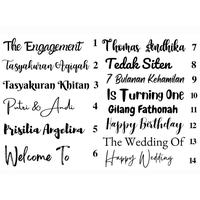 The Engagement 1
Tasyakuran Aqiqah 2
Tasyakuran Khitan 3
Putri & Andi 4
Prisilia Angelina 5
Welcome To 6
Thomas Andhika 7
Tedak Siten 8
7 Bulanan Kehamilan 9
Is Turning One 10
Gilang Fathonah 11
Happy Birthday 12
The Wedding Of 13
Happy Wedding 14